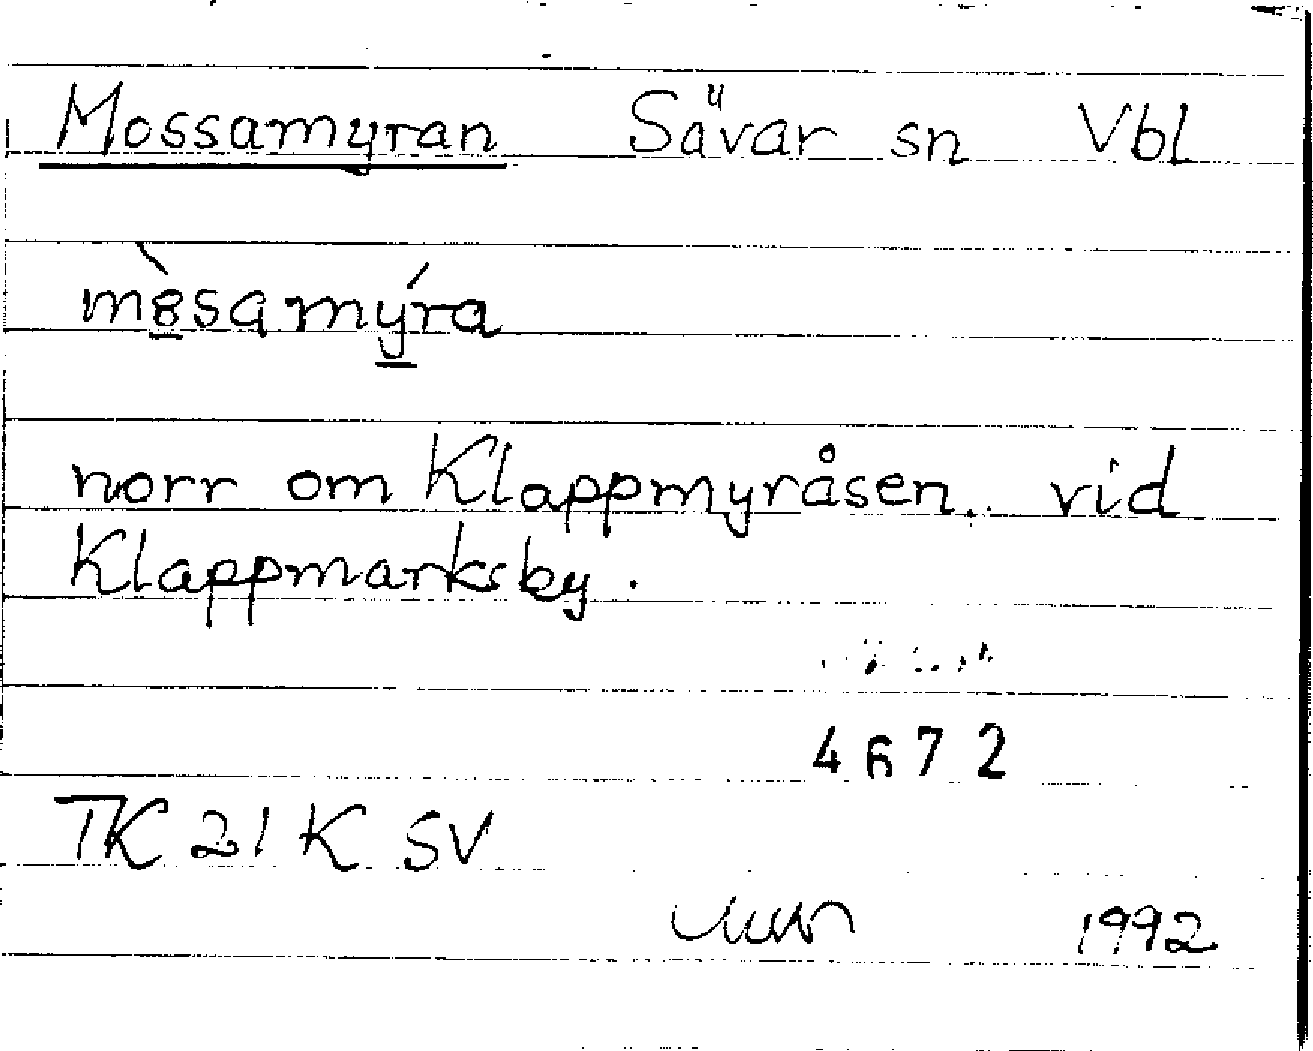 Mossamyran Sävar sn Vbl
mò̱samý̱ra
norr om Klappmyråsen, vid
Klappmarksby.
4672
TK 21 K SV
1992